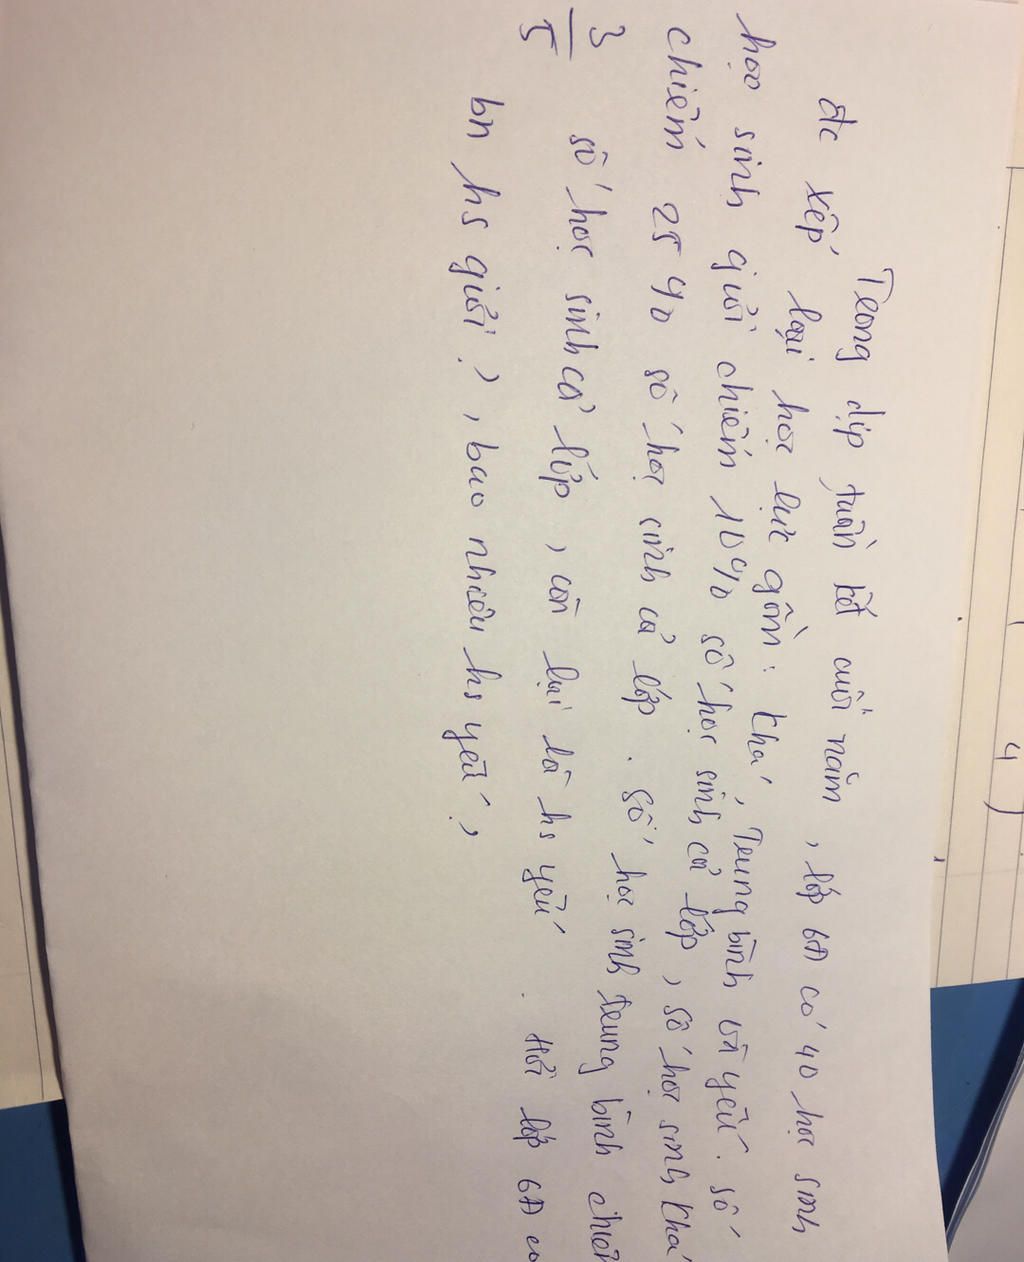 Trong dịp tuần kết cuối năm, lớp 6A có 40 học sinh
đc xếp loại học lực gồm: Khá, Trung bình và yếu. Số
học sinh giỏi chiếm 10% số học sinh cả lớp, số học sinh khá
chiếm 25% số học sinh cả lớp. Số học sinh trung bình chiếm
3/5 số học sinh cả lớp, còn lại là hs yếu. Hỏi lớp 6A có
bn hs giỏi?, bao nhiêu hs yếu,
4)